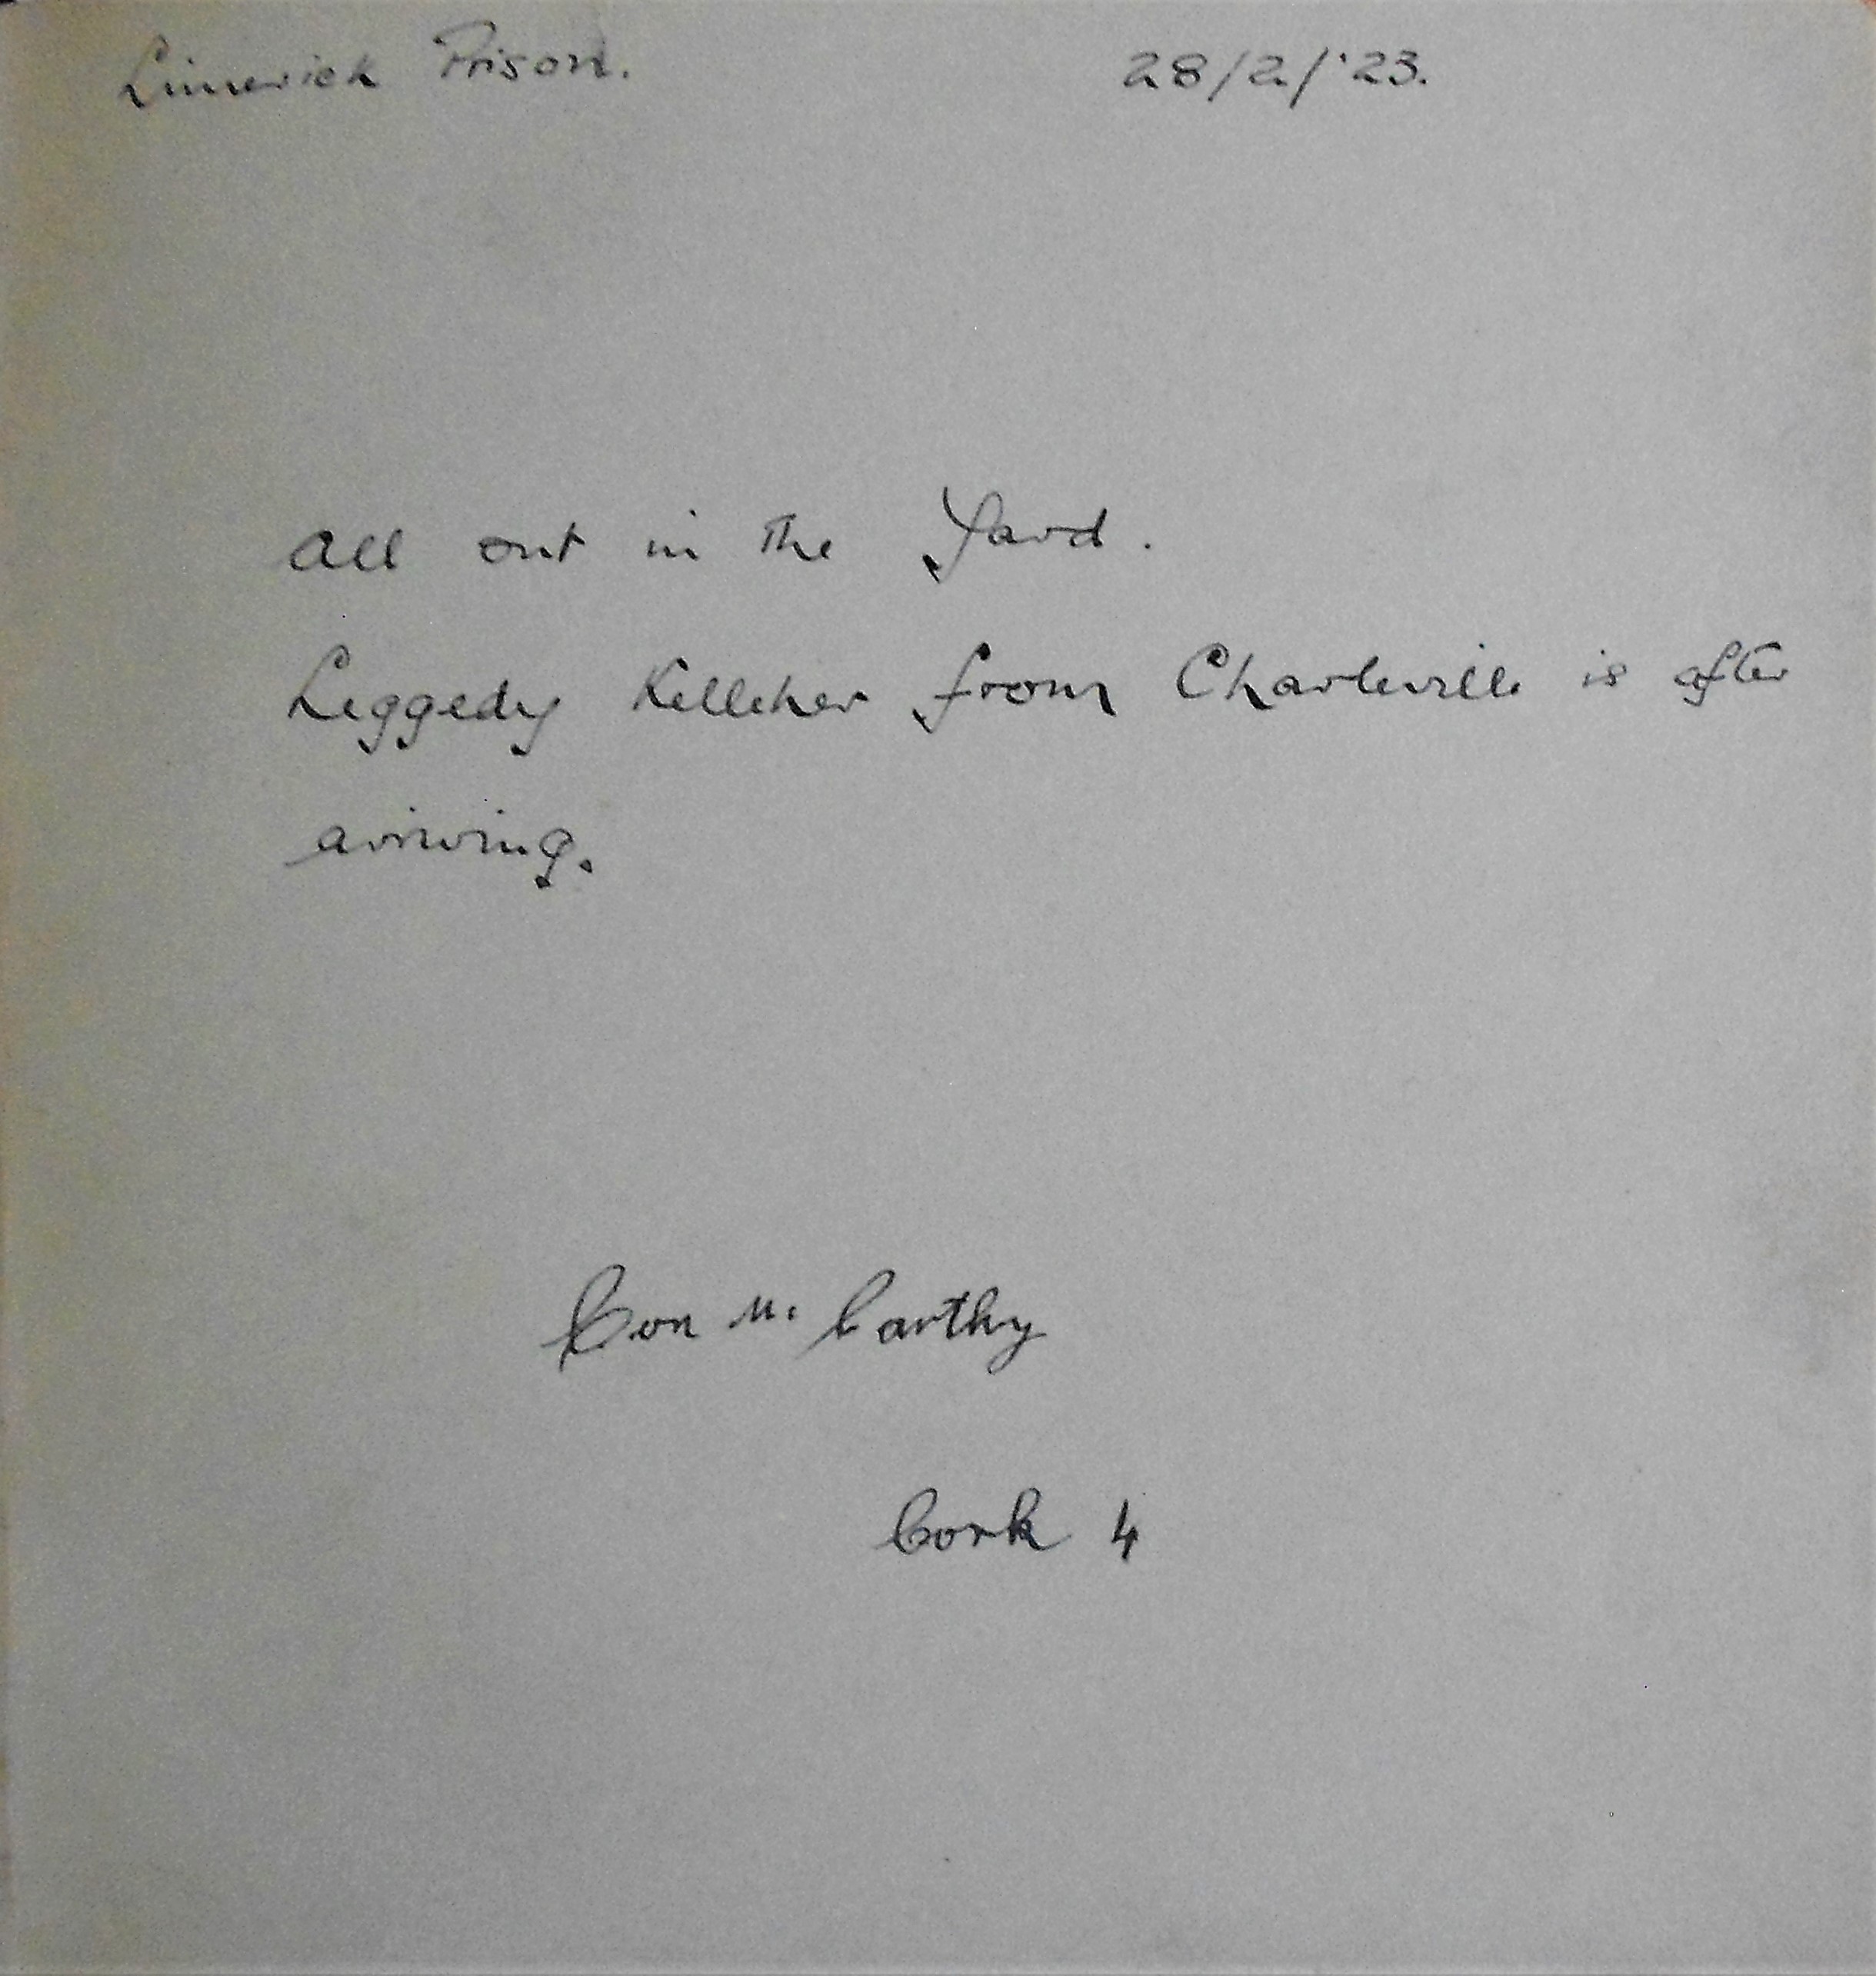 Limerick Prison. 28/2/'23.
All out in the Yard.
Leggedy Kelleher from Charleville is after
arriving.
Con Mc. Carthy
Cork 4